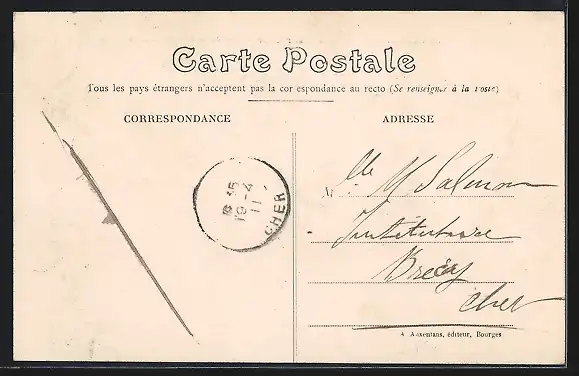 Carte Postale
Tous les pays étrangers n'acceptent pas la cor espondance au recto (Se renseigner à la Poste)
CORRESPONDANCE
ADRESSE
35
19-4
11
CHER
M lle M Salmon
Institutrice
Brécy
Cher
A. Auxenfans, éditeur, Bourges